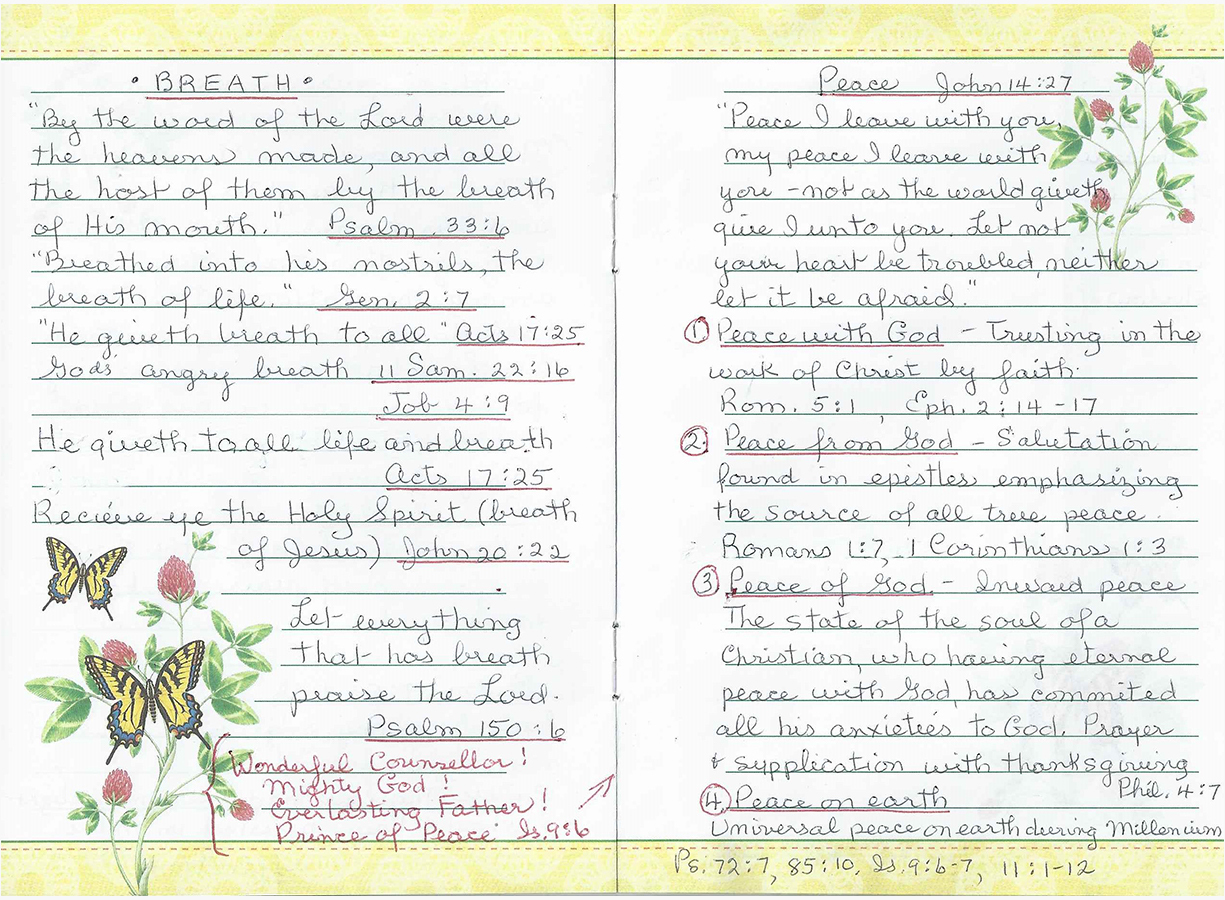 • BREATH •
"By the word of the Lord were
the heavens made, and all
the host of them by the breath
of His mouth." Psalm 33:6
"Breathed into his nostrils, the
breath of life." Gen. 2:7
"He giveth breath to all" Acts 17:25
Gods' angry breath 11 Sam. 22:16
Job 4:9
He giveth to all life and breath
Acts 17:25
Recieve ye the Holy Spirit (breath
of Jesus) John 20:22
Let everything
that has breath
praise the Lord.
Psalm 150:6
Wonderful Counsellor!
Mighty God!
Everlasting Father!
Prince of Peace Is. 9:6
Peace John 14:27
"Peace I leave with you,
my peace I leave with
you - not as the world giveth
give I unto you. Let not
your heart be troubled, neither
let it be afraid."
① Peace with God - Trusting in the
work of Christ by faith.
Rom. 5:1, Eph. 2:14-17
② Peace from God - Salutation
found in epistles emphasizing
the source of all true peace.
Romans 1:7, 1 Corinthians 1:3
③ Peace of God - Inward peace
The state of the soul of a
Christian, who having eternal
peace with God, has commited
all his anxieties to God. Prayer
& supplication with thanksgiving
Phil. 4:7
④ Peace on earth
Universal peace on earth during Millenium
Ps. 72:7, 85:10, Is. 9:6-7, 11:1-12